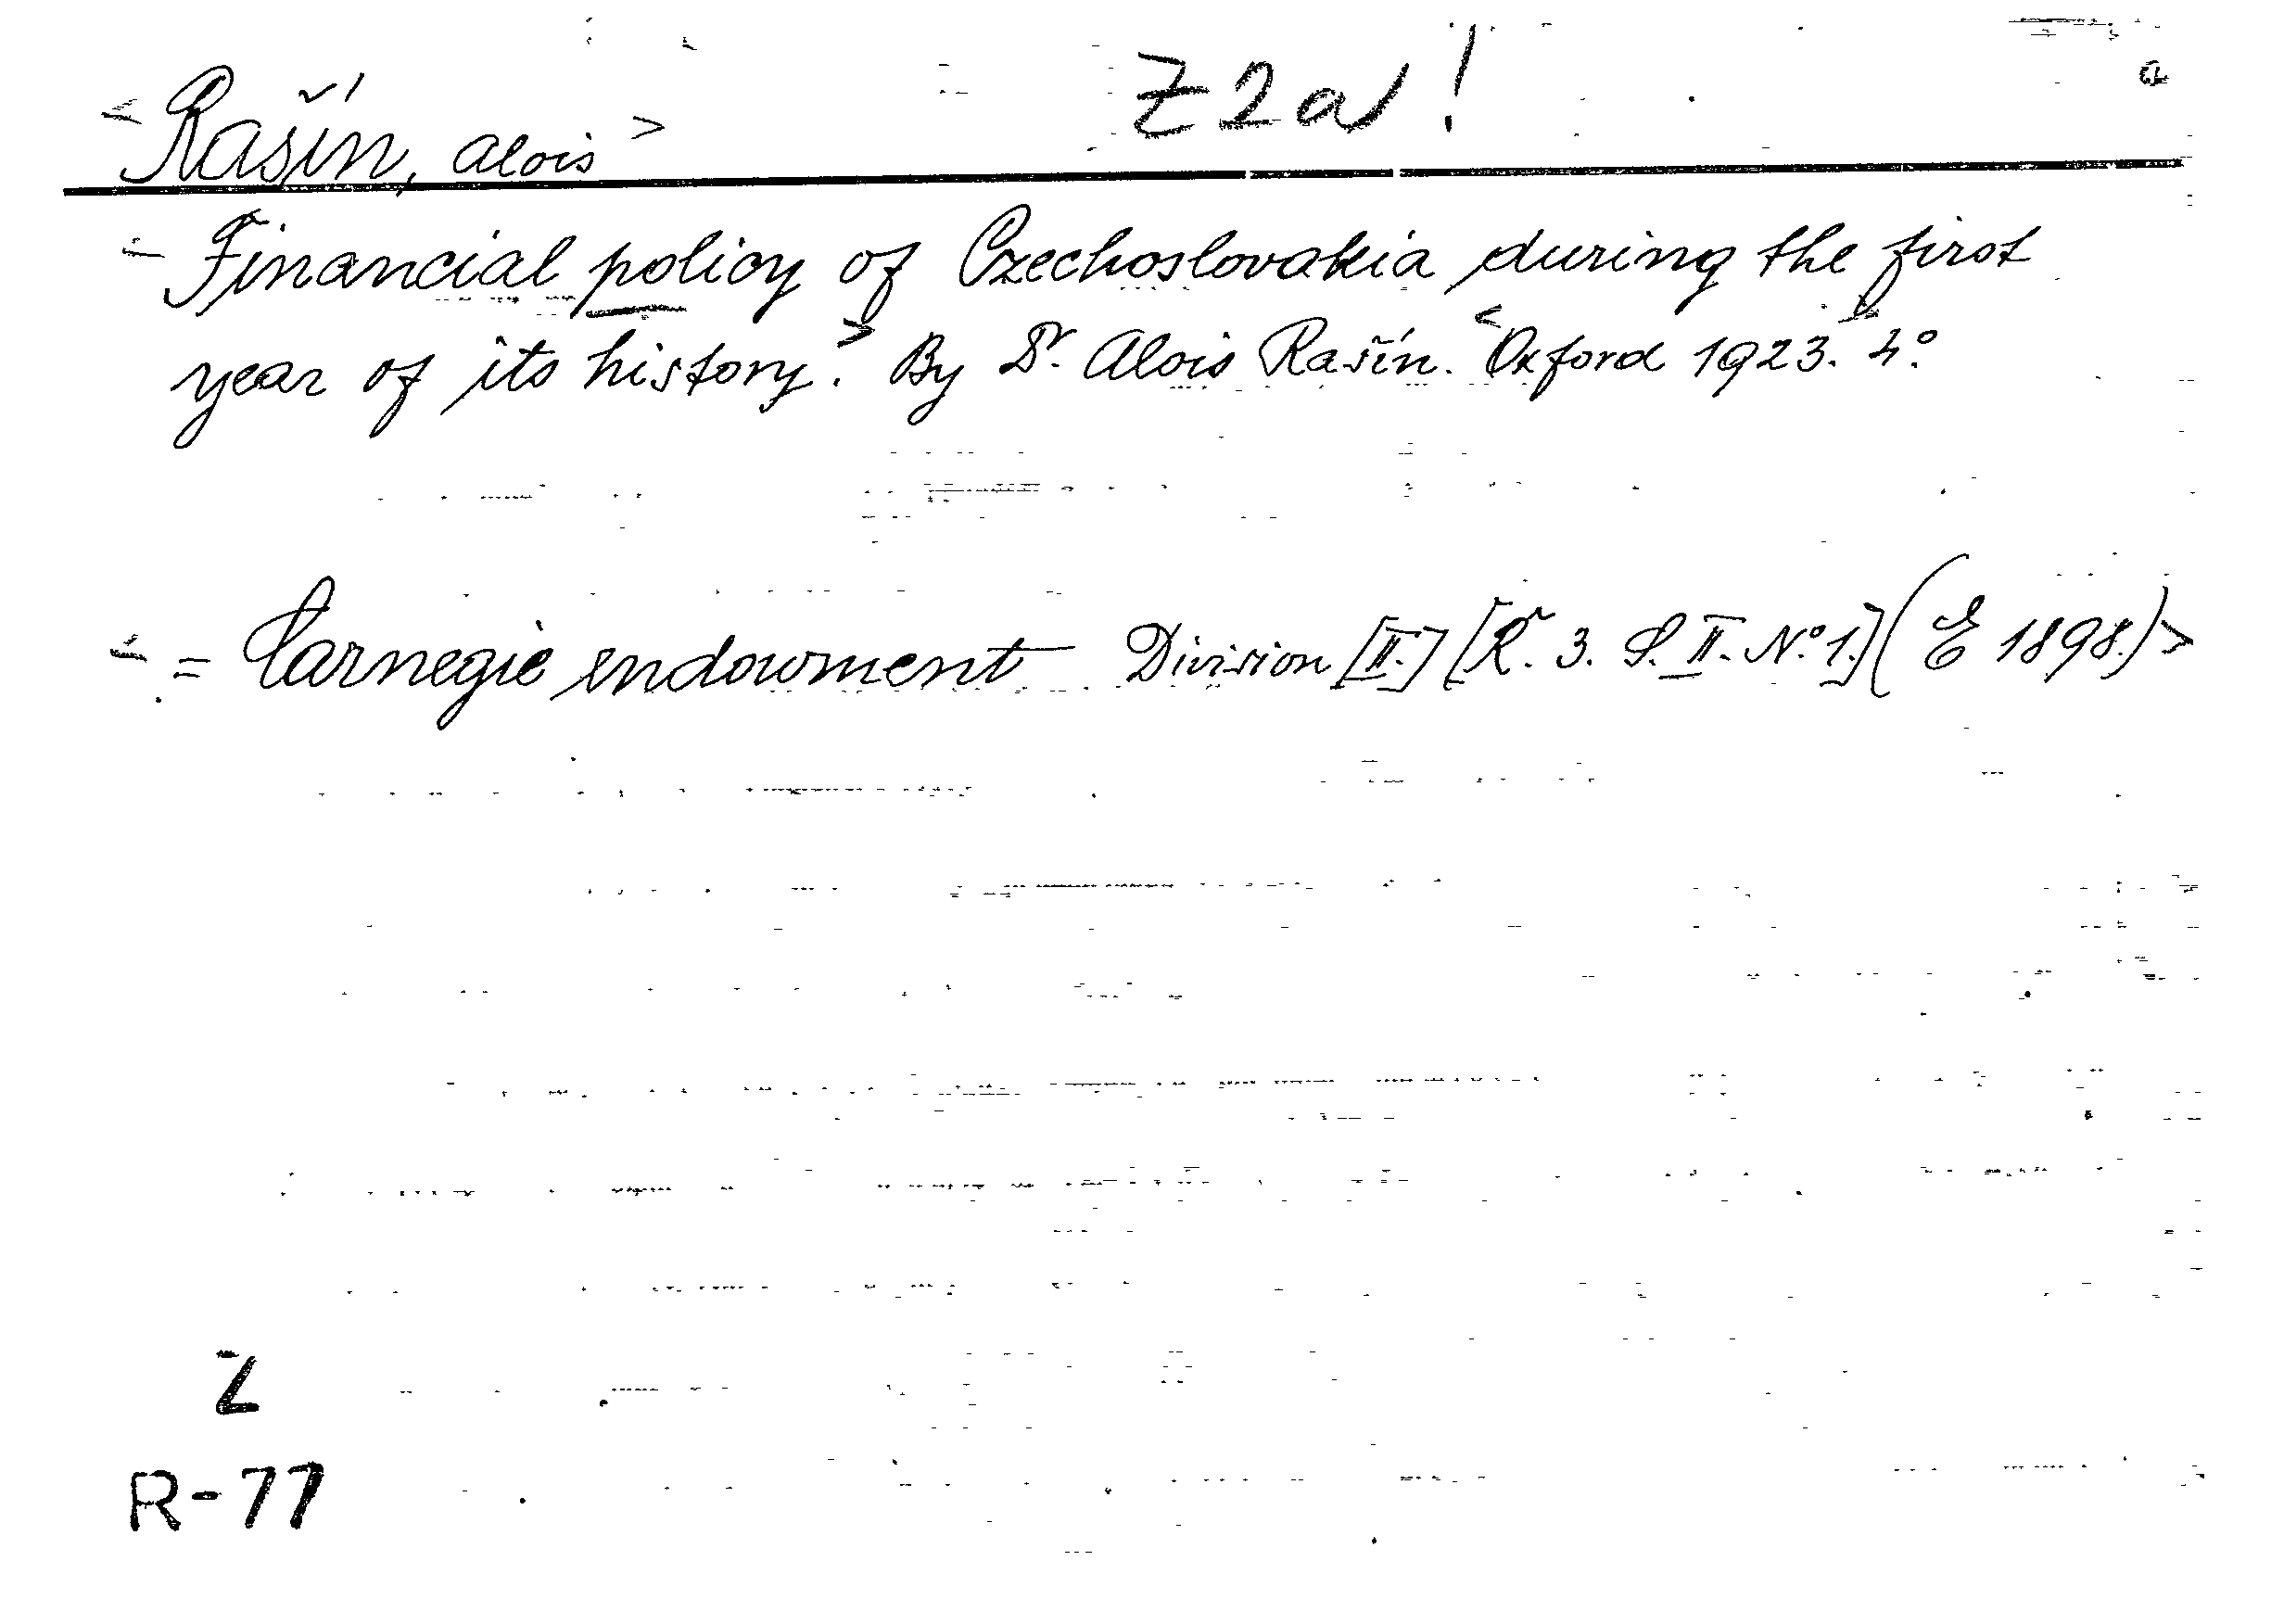 Z2a! a
<Rašín, Alois>
<Financial policy of Czechoslovakia during the first
year of its history.> By Dr. Alois Rašín. <Oxford 1923. 4°.
<= Carnegie endowment Division [II.] [R. 3. S. II. N° 1.] (E 1898.)>
Z
R-77